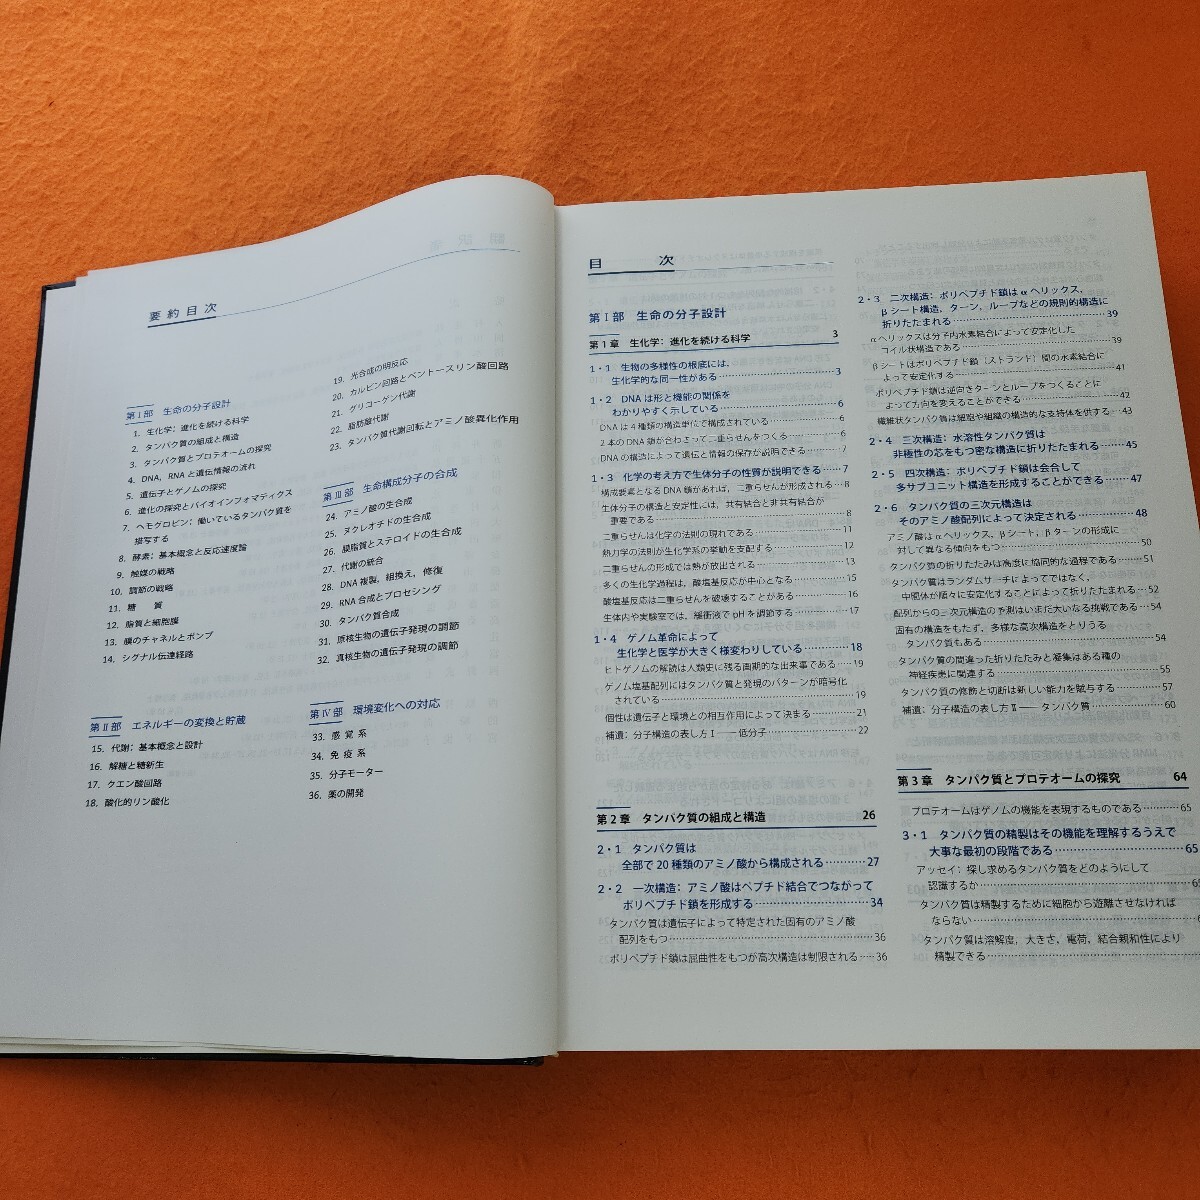 要約目次
第Ⅰ部 生命の分子設計
1. 生化学：進化を続ける科学
2. タンパク質の組成と構造
3. タンパク質とプロテオームの探究
4. DNA，RNAと遺伝情報の流れ
5. 遺伝子とゲノムの探究
6. 進化の探究とバイオインフォマティクス
7. ヘモグロビン：働いているタンパク質を
描写する
8. 酵素：基本概念と反応速度論
9. 触媒の戦略
10. 調節の戦略
11. 糖 質
12. 脂質と細胞膜
13. 膜のチャネルとポンプ
14. シグナル伝達経路
第Ⅱ部 エネルギーの変換と貯蔵
15. 代謝：基本概念と設計
16. 解糖と糖新生
17. クエン酸回路
18. 酸化的リン酸化
19. 光合成の明反応
20. カルビン回路とペントースリン酸回路
21. グリコーゲン代謝
22. 脂肪酸代謝
23. タンパク質代謝回転とアミノ酸異化作用
第Ⅲ部 生命構成分子の合成
24. アミノ酸の生合成
25. ヌクレオチドの生合成
26. 膜脂質とステロイドの生合成
27. 代謝の統合
28. DNA複製，組換え，修復
29. RNA合成とプロセシング
30. タンパク質合成
31. 原核生物の遺伝子発現の調節
32. 真核生物の遺伝子発現の調節
第Ⅳ部 環境変化への対応
33. 感覚系
34. 免疫系
35. 分子モーター
36. 薬の開発
目 次
第Ⅰ部 生命の分子設計
第1章 生化学：進化を続ける科学 3
1・1 生物の多様性の根底には，
生化学的な同一性がある 3
1・2 DNAは形と機能の関係を
わかりやすく示している 6
DNAは4種類の構造単位で構成されている 6
2本のDNA鎖が合わさって二重らせんをつくる 6
DNAの構造によって遺伝と情報の保存が説明できる 7
1・3 化学の考え方で生体分子の性質が説明できる 7
構成要素となるDNA鎖があれば，二重らせんが形成される 8
生体分子の構造と安定性には，共有結合と非共有結合が
重要である 8
二重らせんは化学の法則の現れである 11
熱力学の法則が生化学系の挙動を支配する 12
二重らせんの形成では熱が放出される 13
多くの生化学過程は，酸塩基反応が中心となる 15
酸塩基反応は二重らせんを破壊することがある 16
生体内や実験室では，緩衝液でpHを調節する 17
1・4 ゲノム革命によって
生化学と医学が大きく様変わりしている 18
ヒトゲノムの解読は人類史に残る画期的な出来事である 19
ゲノム塩基配列にはタンパク質と発現のパターンが暗号化
されている 19
個性は遺伝子と環境との相互作用によって決まる 21
補遺：分子構造の表し方Ⅰ——低分子 22
第2章 タンパク質の組成と構造 26
2・1 タンパク質は
全部で20種類のアミノ酸から構成される 27
2・2 一次構造：アミノ酸はペプチド結合でつながって
ポリペプチド鎖を形成する 34
タンパク質は遺伝子によって特定された固有のアミノ酸
配列をもつ 36
ポリペプチド鎖は屈曲性をもつが高次構造は制限される 36
2・3 二次構造：ポリペプチド鎖はαヘリックス，
βシート構造，ターン，ループなどの規則的構造に
折りたたまれる 39
αヘリックスは分子内水素結合によって安定化した
コイル状構造である 39
βシートはポリペプチド鎖（ストランド）間の水素結合に
よって安定化する 41
ポリペプチド鎖は逆向きターンとループをつくることに
よって方向を変えることができる 42
繊維状タンパク質は細胞や組織の構造的な支持体を供する 43
2・4 三次構造：水溶性タンパク質は
非極性の芯をもつ密な構造に折りたたまれる 45
2・5 四次構造：ポリペプチド鎖は会合して
多サブユニット構造を形成することができる 47
2・6 タンパク質の三次元構造は
そのアミノ酸配列によって決定される 48
アミノ酸はαヘリックス，βシート，βターンの形成に
対して異なる傾向をもつ 50
タンパク質の折りたたみは高度に協同的な過程である 51
タンパク質はランダムサーチによってではなく，
中間体が順々に安定化することによって折りたたまれる 52
配列からの三次元構造の予測はいまだ大いなる挑戦である 54
固有の構造をもたず，多様な高次構造をとりうる
タンパク質もある 54
タンパク質の間違った折りたたみと凝集はある種の
神経疾患に関連する 55
タンパク質の修飾と切断は新しい能力を賦与する 57
補遺：分子構造の表し方Ⅱ——タンパク質 60
第3章 タンパク質とプロテオームの探究 64
プロテオームはゲノムの機能を表現するものである 65
3・1 タンパク質の精製はその機能を理解するうえで
大事な最初の段階である 65
アッセイ：探し求めるタンパク質をどのようにして
認識するか
タンパク質は精製するために細胞から遊離させなければ
ならない
タンパク質は溶解度，大きさ，電荷，結合親和性により
精製できる